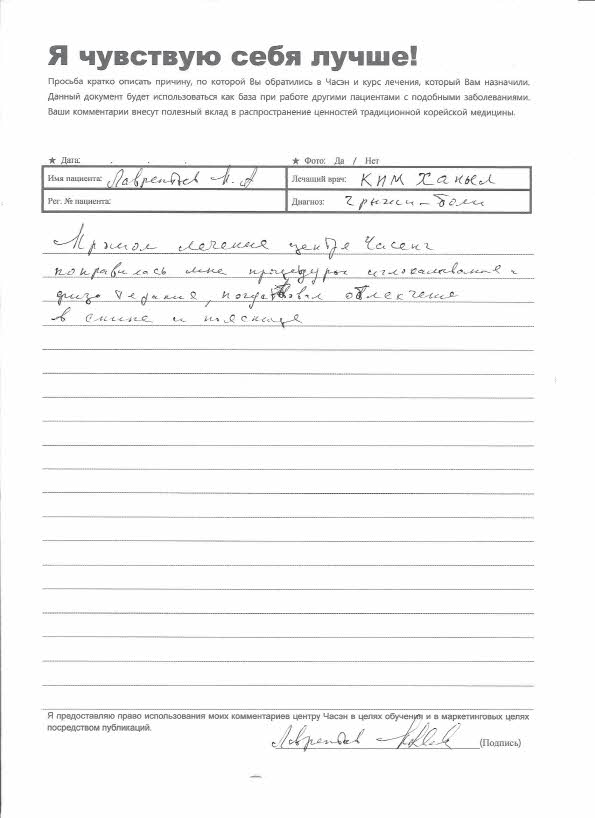 Я чувствую себя лучше!
Просьба кратко описать причину, по которой Вы обратились в Часэн и курс лечения, который Вам назначили.
Данный документ будет использоваться как база при работе другими пациентами с подобными заболеваниями.
Ваши комментарии внесут полезный вклад в распространение ценностей традиционной корейской медицины.
★ Дата: . . . ★ Фото: Да / Нет
Имя пациента: Лаврентьев Лечащий врач: КИМ Ханыл
Рег. № пациента: Диагноз: Грыжи-боли
лечение центре Часенг
понравилась мне процедуры иглокалывание и
физо терапие, почуствовал облекчение
в спине и пояснице
Я предоставляю право использования моих комментариев центру Часэн в целях обучения и в маркетинговых целях
посредством публикаций.
Лаврентьев (Подпись)